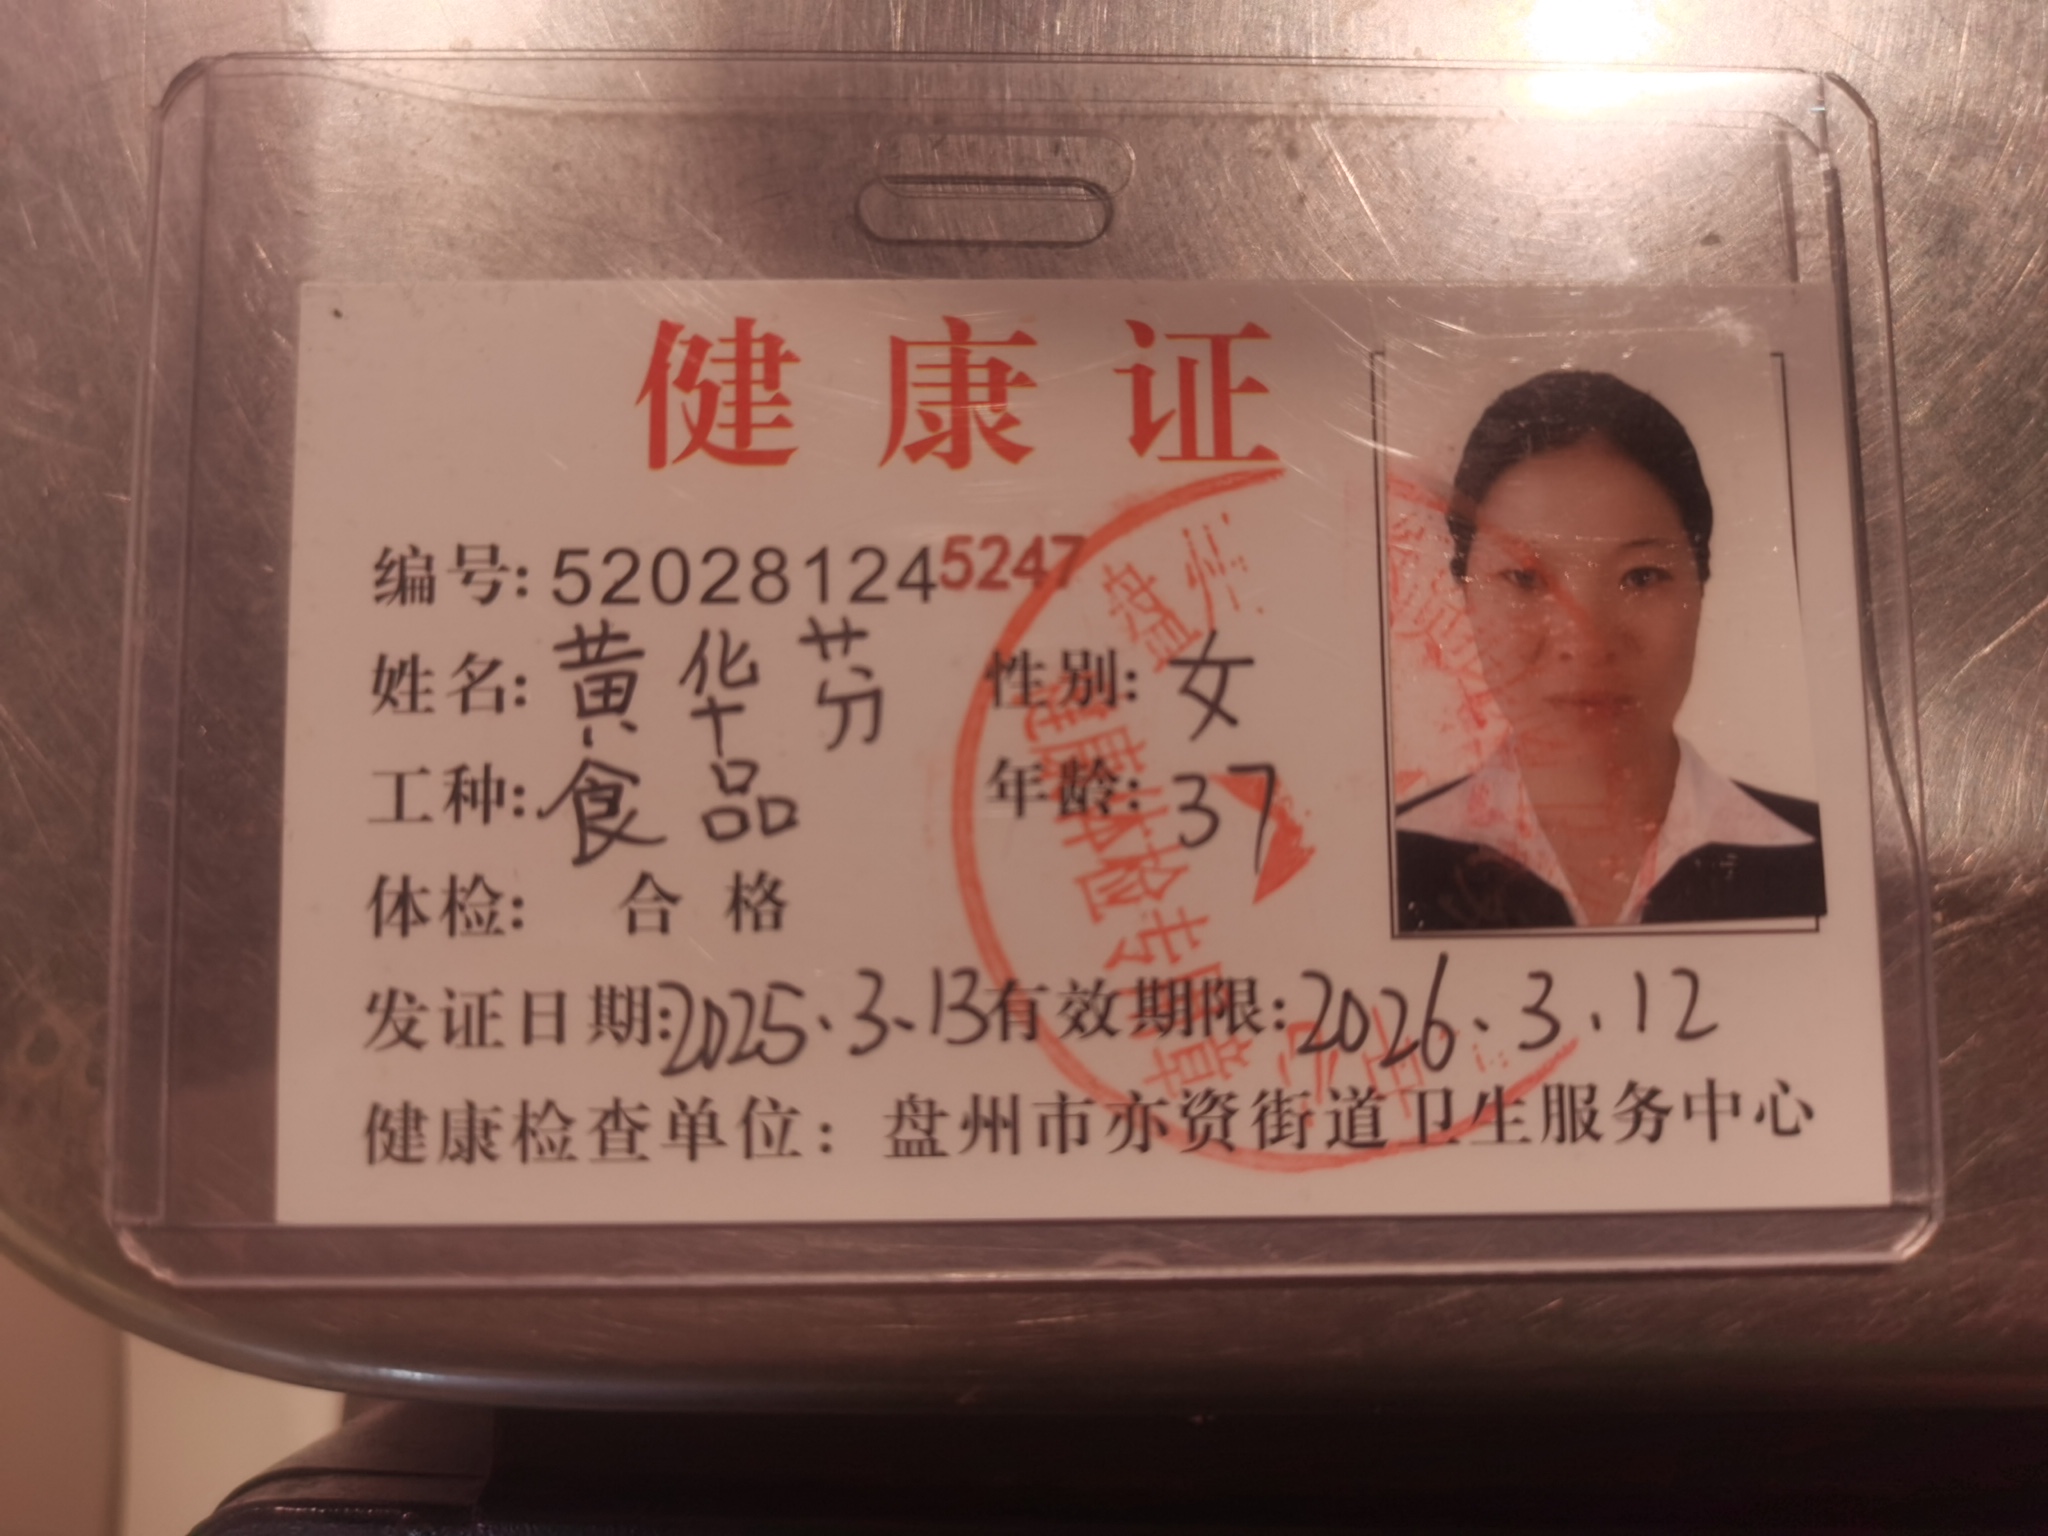 健康证
编号: 520281245247
姓名: 黄华芬 性别: 女
工种: 食品 年龄: 37
体检: 合格
发证日期: 2025.3.13 有效期限: 2026.3.12
健康检查单位: 盘州市亦资街道卫生服务中心
健康体检专用章